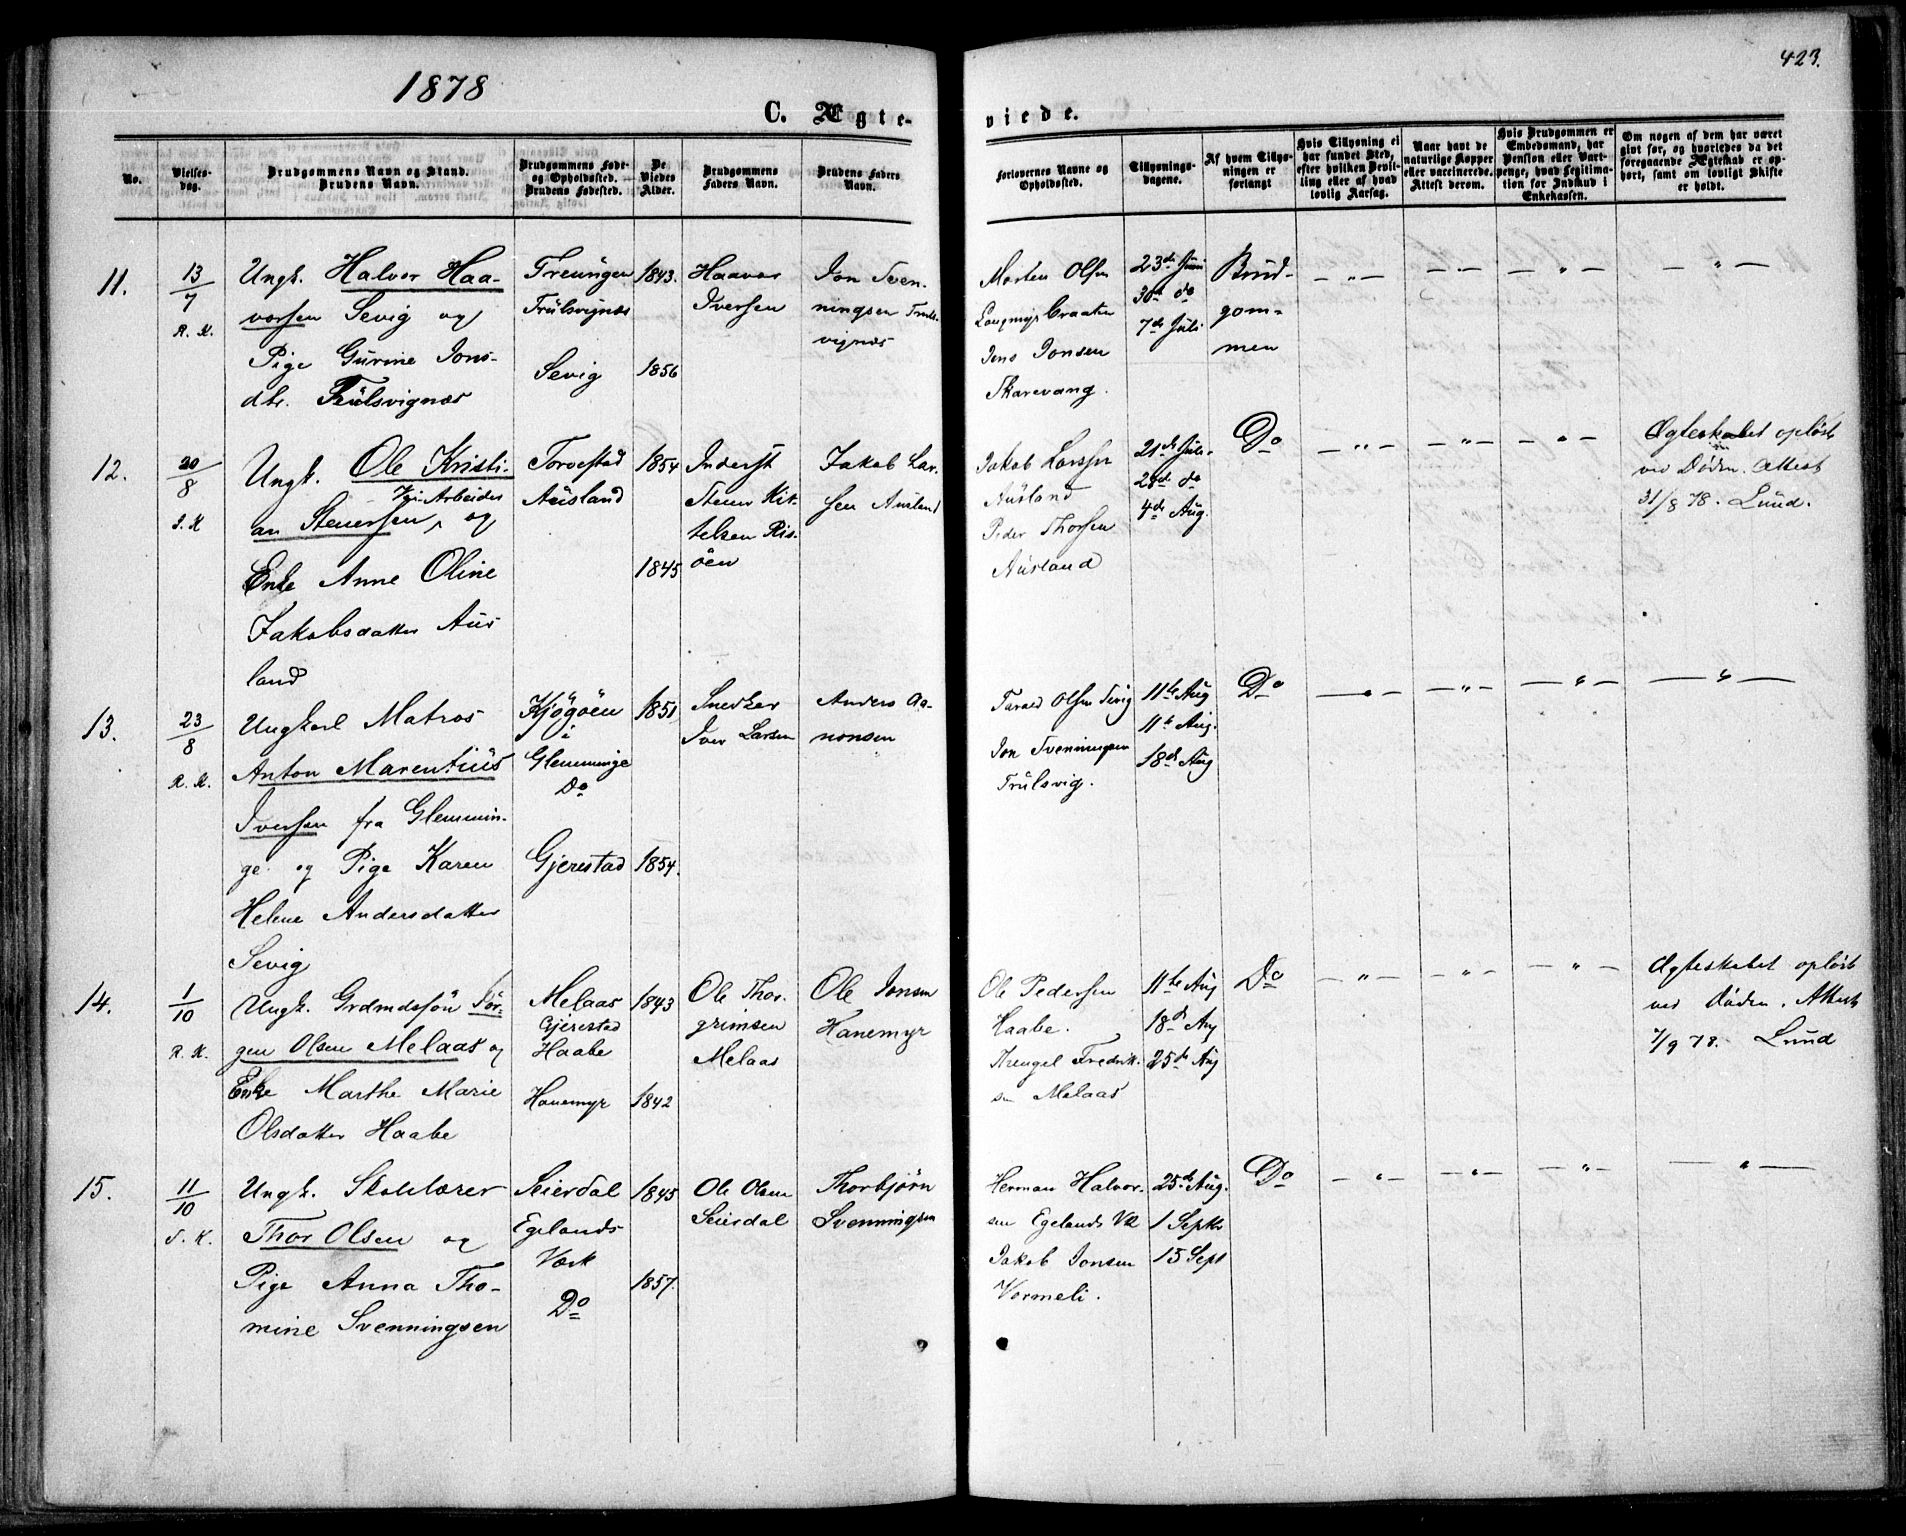 1878
423.
C. Ægte-
viede.
No.
Vielses-
dag.
Brudgommens Navn og Stand.
Brudens Navn.
Brudgommens Føde-
og Opholdssted.
Brudens Fødested.
De
Viedes
Alder.
Brudgommens
Faders Navn.
Brudens Faders
Navn.
Forlovernes Navne og
Opholdssted.
Tillysnings-
dagene.
Af hvem Tillys-
ningen er
forlangt
Hvis Tillysning ei
har fundet Sted,
efter hvilken Bevil-
ling eller af hvad
lovlig Aarsag.
Naar havt de
naturlige Kopper
eller vaccinerede.
Attest derom.
Hvis Brudgommen er
Embedsmand, har
Pension eller Vart-
penge, hvad Legitima-
tion for Indskud i
Enkekassen.
Om nogen af dem har været
gift før, og hvorledes da det
foregaaende Ægteskab er op-
hørt, samt om lovligt Skifte
er holdt.
11.
13/7
R. K.
Ungk. Halvor Haa-
vorsen Sevig og
Pige Gurine Jons-
dtr. Trulsvignæs
Treungen
Trulsvignæs
Sevig
1843.
1856
Haavor
Iversen
Jon Sven-
ningsen Truls-
vignæs
Morten Olsen
Langmyr Craaten
Jens Jonsen
Skarevang.
23de Juni
30te do
7de Juli
Brud-
gom-
men
12.
20/8
S. K
Ungk. Ole Kristi-
an Steenersen, og
Enke Anne Oline
Jakobsdatter Aus
land
Torvestad
Ausland
1854
1845
Inderst
Stener Kit-
telsen Ris-
öen
Jakob Lar-
sen Ausland
Jakob Larsen
Ausland
Peder Thorsen
Ausland
21de Juli.
28de do
4de Aug.
Do
Ægteskabet opløst
ved Døden. Attest
31/8 78. Lund.
13.
23/8
R. K.
Ungkarl Matros
Anton Marentius
Iversen fra Glemmin-
ge og Pige Karen
Helene Andersdatter
Sevig
Kjøgöen
i
Glemminge
Do
Gjerestad
1851
1854.
Snedker
Iver Larsen
Anders Aa-
nonsen
Tarald Olsen Sevig
Jon Svenningsen
Trulsvig.
11te Aug
11te Aug.
18de Aug
Do
14.
1/10
R. K.
Ungk. Grdmdssön Jör-
gen Olsen Melaas og
Enke Marthe Marie
Olsdatter Haabe
Melaas
Gjerestad
Haabe
Hanemyr
1843
1842
Ole Thor-
grimsen
Melaas
Ole Jonsen
Hanemyr
Ole Pedersen
Haabe.
Arengel Fredrik-
sen Melaas
11te Aug
18de Aug
25de Aug
Do
Ægteskabet opløst
ved Døden. Attest
7/9 78. Lund
15.
11/10
S. K.
Ungk. Skolelærer
Thor Olsen og
Pige Anna Tho-
mine Svenningsen
Seierdal
Egelands
Værk
Do
1845
1857.
Ole Olsen
Seierdal
Thorbjørn
Svenningsen
Herman Halvor-
sen Egelands Vk
Jakob Jonsen
Vormeli.
25de Aug.
1 Septbr
15 Sept
Do